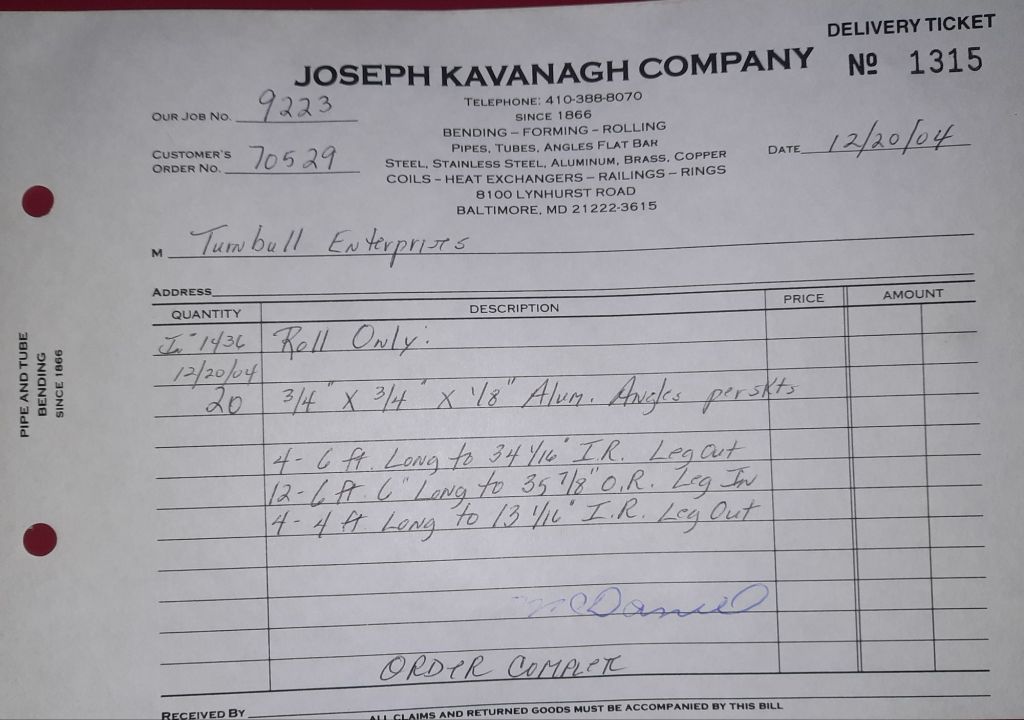 DELIVERY TICKET
JOSEPH KAVANAGH COMPANY
Nº 1315
TELEPHONE: 410-388-8070
SINCE 1866
BENDING – FORMING – ROLLING
PIPES, TUBES, ANGLES FLAT BAR
STEEL, STAINLESS STEEL, ALUMINUM, BRASS, COPPER
COILS – HEAT EXCHANGERS – RAILINGS – RINGS
8100 LYNHURST ROAD
BALTIMORE, MD 21222-3615
OUR JOB NO. 9223
CUSTOMER'S
ORDER NO. 70529
DATE 12/20/04
M Turnbull Enterprises
ADDRESS
QUANTITY DESCRIPTION PRICE AMOUNT
In 1436 Roll Only:
12/20/04
20 3/4" X 3/4" X 1/8" Alum. Angles per skts
4- 6 ft. Long to 34 1/16" I.R. Leg Out
12- 6 ft. 6" Long to 35 7/8" O.R. Leg In
4- 4 ft Long to 13 1/16" I.R. Leg Out
McDaniel
ORDER COMPLETE
RECEIVED BY
ALL CLAIMS AND RETURNED GOODS MUST BE ACCOMPANIED BY THIS BILL
PIPE AND TUBE
BENDING
SINCE 1866